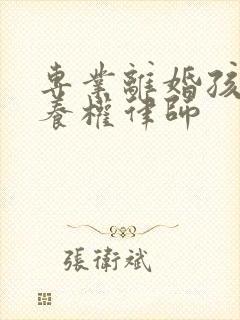 專業離婚孩
養權律師
張衛斌